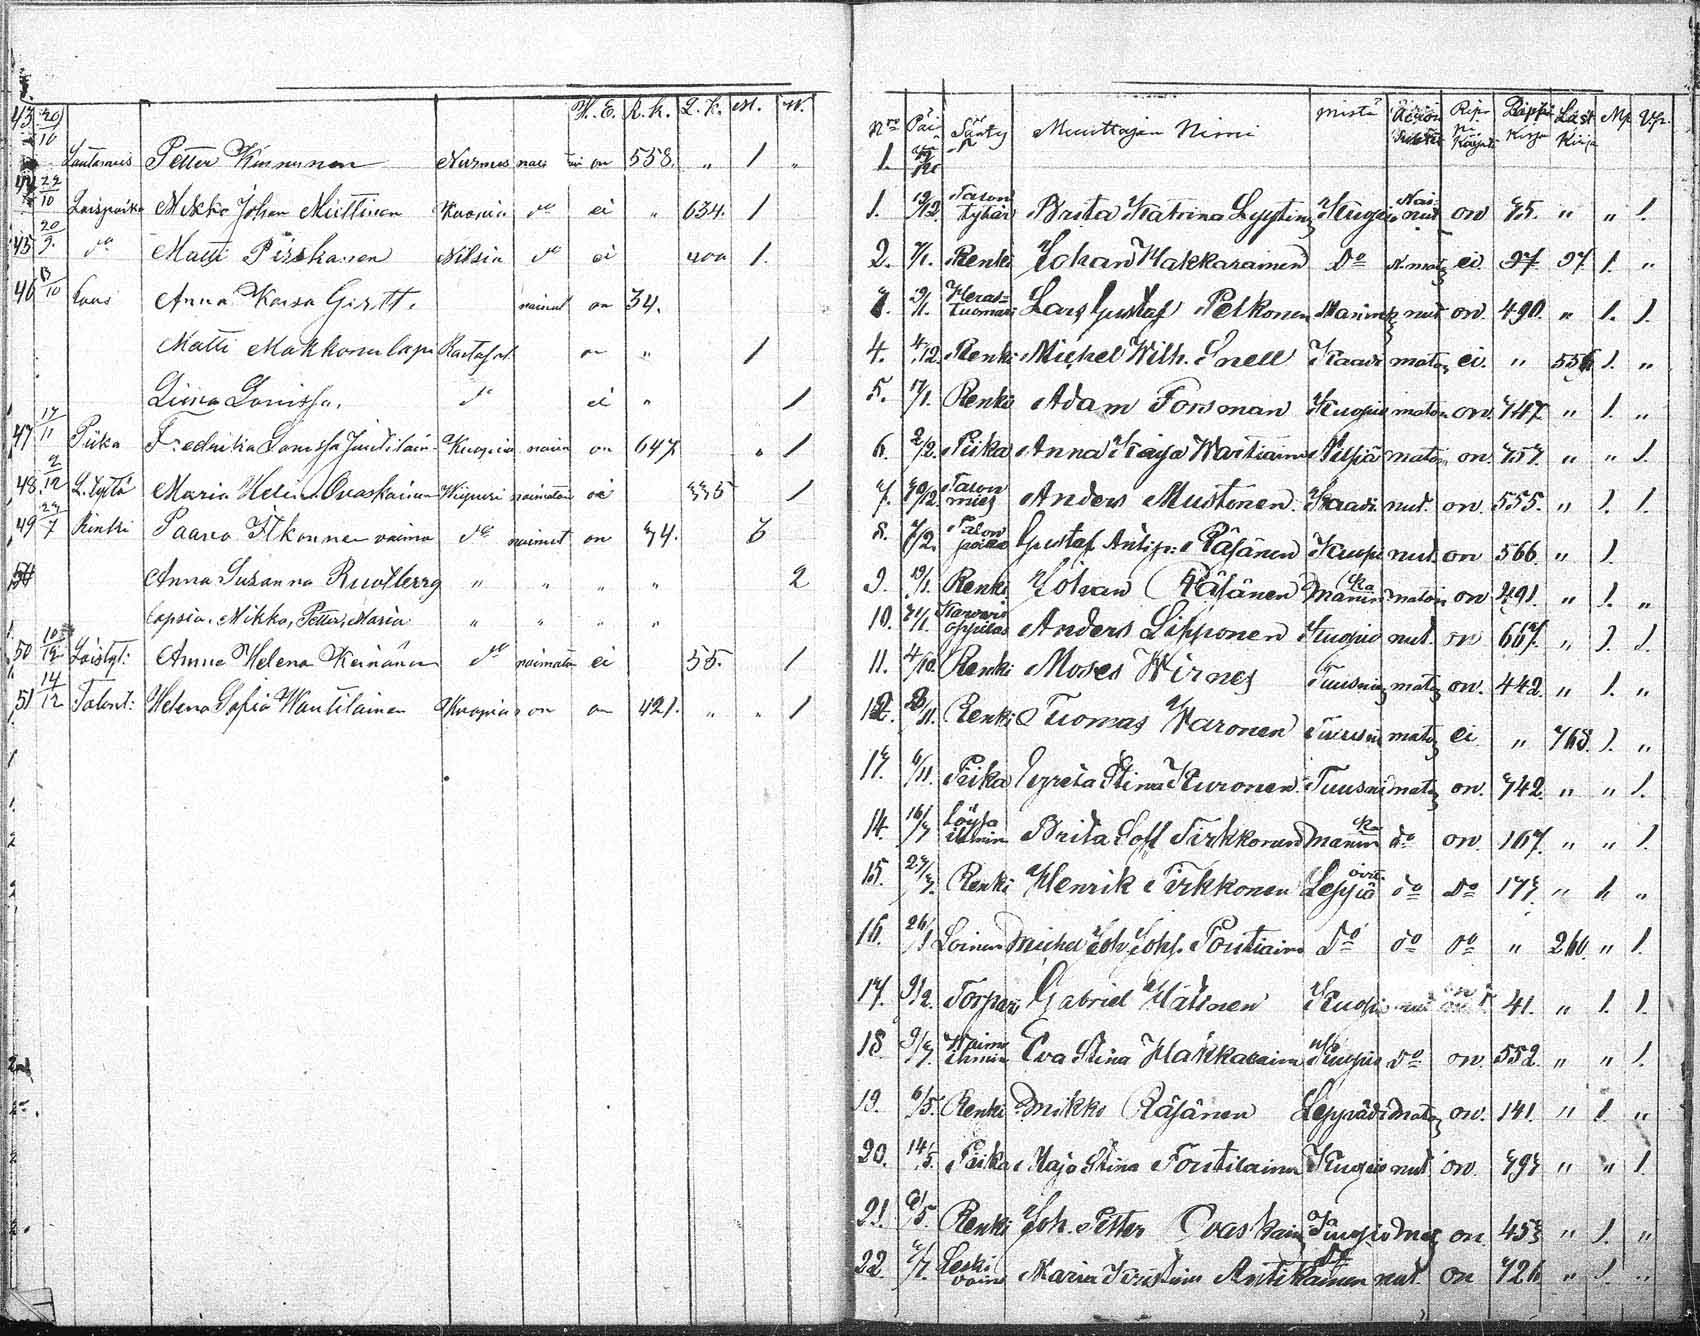 W. E. R. K. L. K. M. W.
43 20/10 Petter Kinnunen Nurmes on 558. " 1 "
44 22/10 Loispoika Mikko Johan Miettinen Kuopio do ei " 634. 1
45 20/9. do Matti Pirskanen Nilsiä do ei 400 1.
46 13/10 Anna Kaisa Girstt. naimut on 34.
Matti Makkonen laps on " 1
Liina Lovissa. do ei " 1
47 17/11 Piika Fredrika Lovissa Juutilain Kuopio naim on 647 " 1
48. 2/12 L. tyttö Maria Helena Ovaskainen Wiipuri naimaton ei 335 1
49 23/7 Renki Paavo Itkonnen vaimo do naimut on 74. 3
Anna Susanna Ruotberg " " " " 2
lapsia. Mikko, Petter, Maria " " " "
50 10/12 Loistyt: Anna Helena Keinänen do naimaton ei 55. 1
51 14/12 Talont: Helena Sofia Wäntilainen Kuopio on on 421. " " 1
Nro Päi Sääty Muuttajan Nimi mistä Rip Kirja Läst Kirja Mp. Vp.
1.
1. 13/12. Talon tytär Brita Katrina Lyytin Kuopio Naimut on 75. " " 1.
2. 7/1. Renki Johan Hakkarainen Do N. mato ei. 97 97. 1. "
3. 19/1. Heras-tuomari Lars Gustaf Pelkonen Maanink nut. on. 490. " 1. 1.
4. 4/12. Renki Michel Wilh. Snell Kaavi maton ei. " 556 1. "
5. 17/1. Renki Adam Forsman Kuopio maton on. 747. " 1. "
6. 2/2. Piika Anna Kaija Wartiainen Nilsiä maton on. 757. " " 1.
7. 20/12. Talon mies Anders Mustonen. Kaavi. nut. on. 555. " 1. 1.
8. 7/2. Talon poika Gustaf Antip: Räsänen Kuopi nut. on 566. " 1.
9. 19/1. Renki Johan Räsänen Maaninka maton on 291. " 1. "
10. 21/1. Karvari oppilas Anders Lipponen Kuopio nut. on 667. " 1. 1.
11. 4/12 Renki Moses Wirnes Tuusnie maton on. 442. " 1. "
12. 23/11. Renki Tuomas Karonen Tuusni maton ei " 768. 1. "
13. 6/11. Piika Greta Stina Kuronen. Tuusni maton on. 742. " " 1.
14. 16/7 Löysä ihmin Brita Sofi Tirkkonen Maaninka do on. 167. " " 1.
15. 27/7. Renki Henrik Tirkkonen Leppävirta do Do 177. " 1. "
16. 26/1 Loinen Michel Joh Johs. Poutiain Do do Do " 260. " 1.
17. 9/12. Torpari Gabriel Hätinen Kuopio nut on 41. " 1. 1.
18. 9/7. Waimo ihmin Eva Stina Hakkarain Kuopio Do on. 552. " " 1.
19. 6/5. Renki Mikko Räsänen Leppävi maton on. 141 " 1 "
20. 14/5. Piika Maja Stina Toutilainen Kuopio nut on. 797 " " 1.
21. 9/5. Renki Joh. Petter Ovaskain Kuopio mat on. 453 " 1. "
22. 7/7. Leski vaim Maria Kristiin Antikainen Do nut. on 726 " 1. "